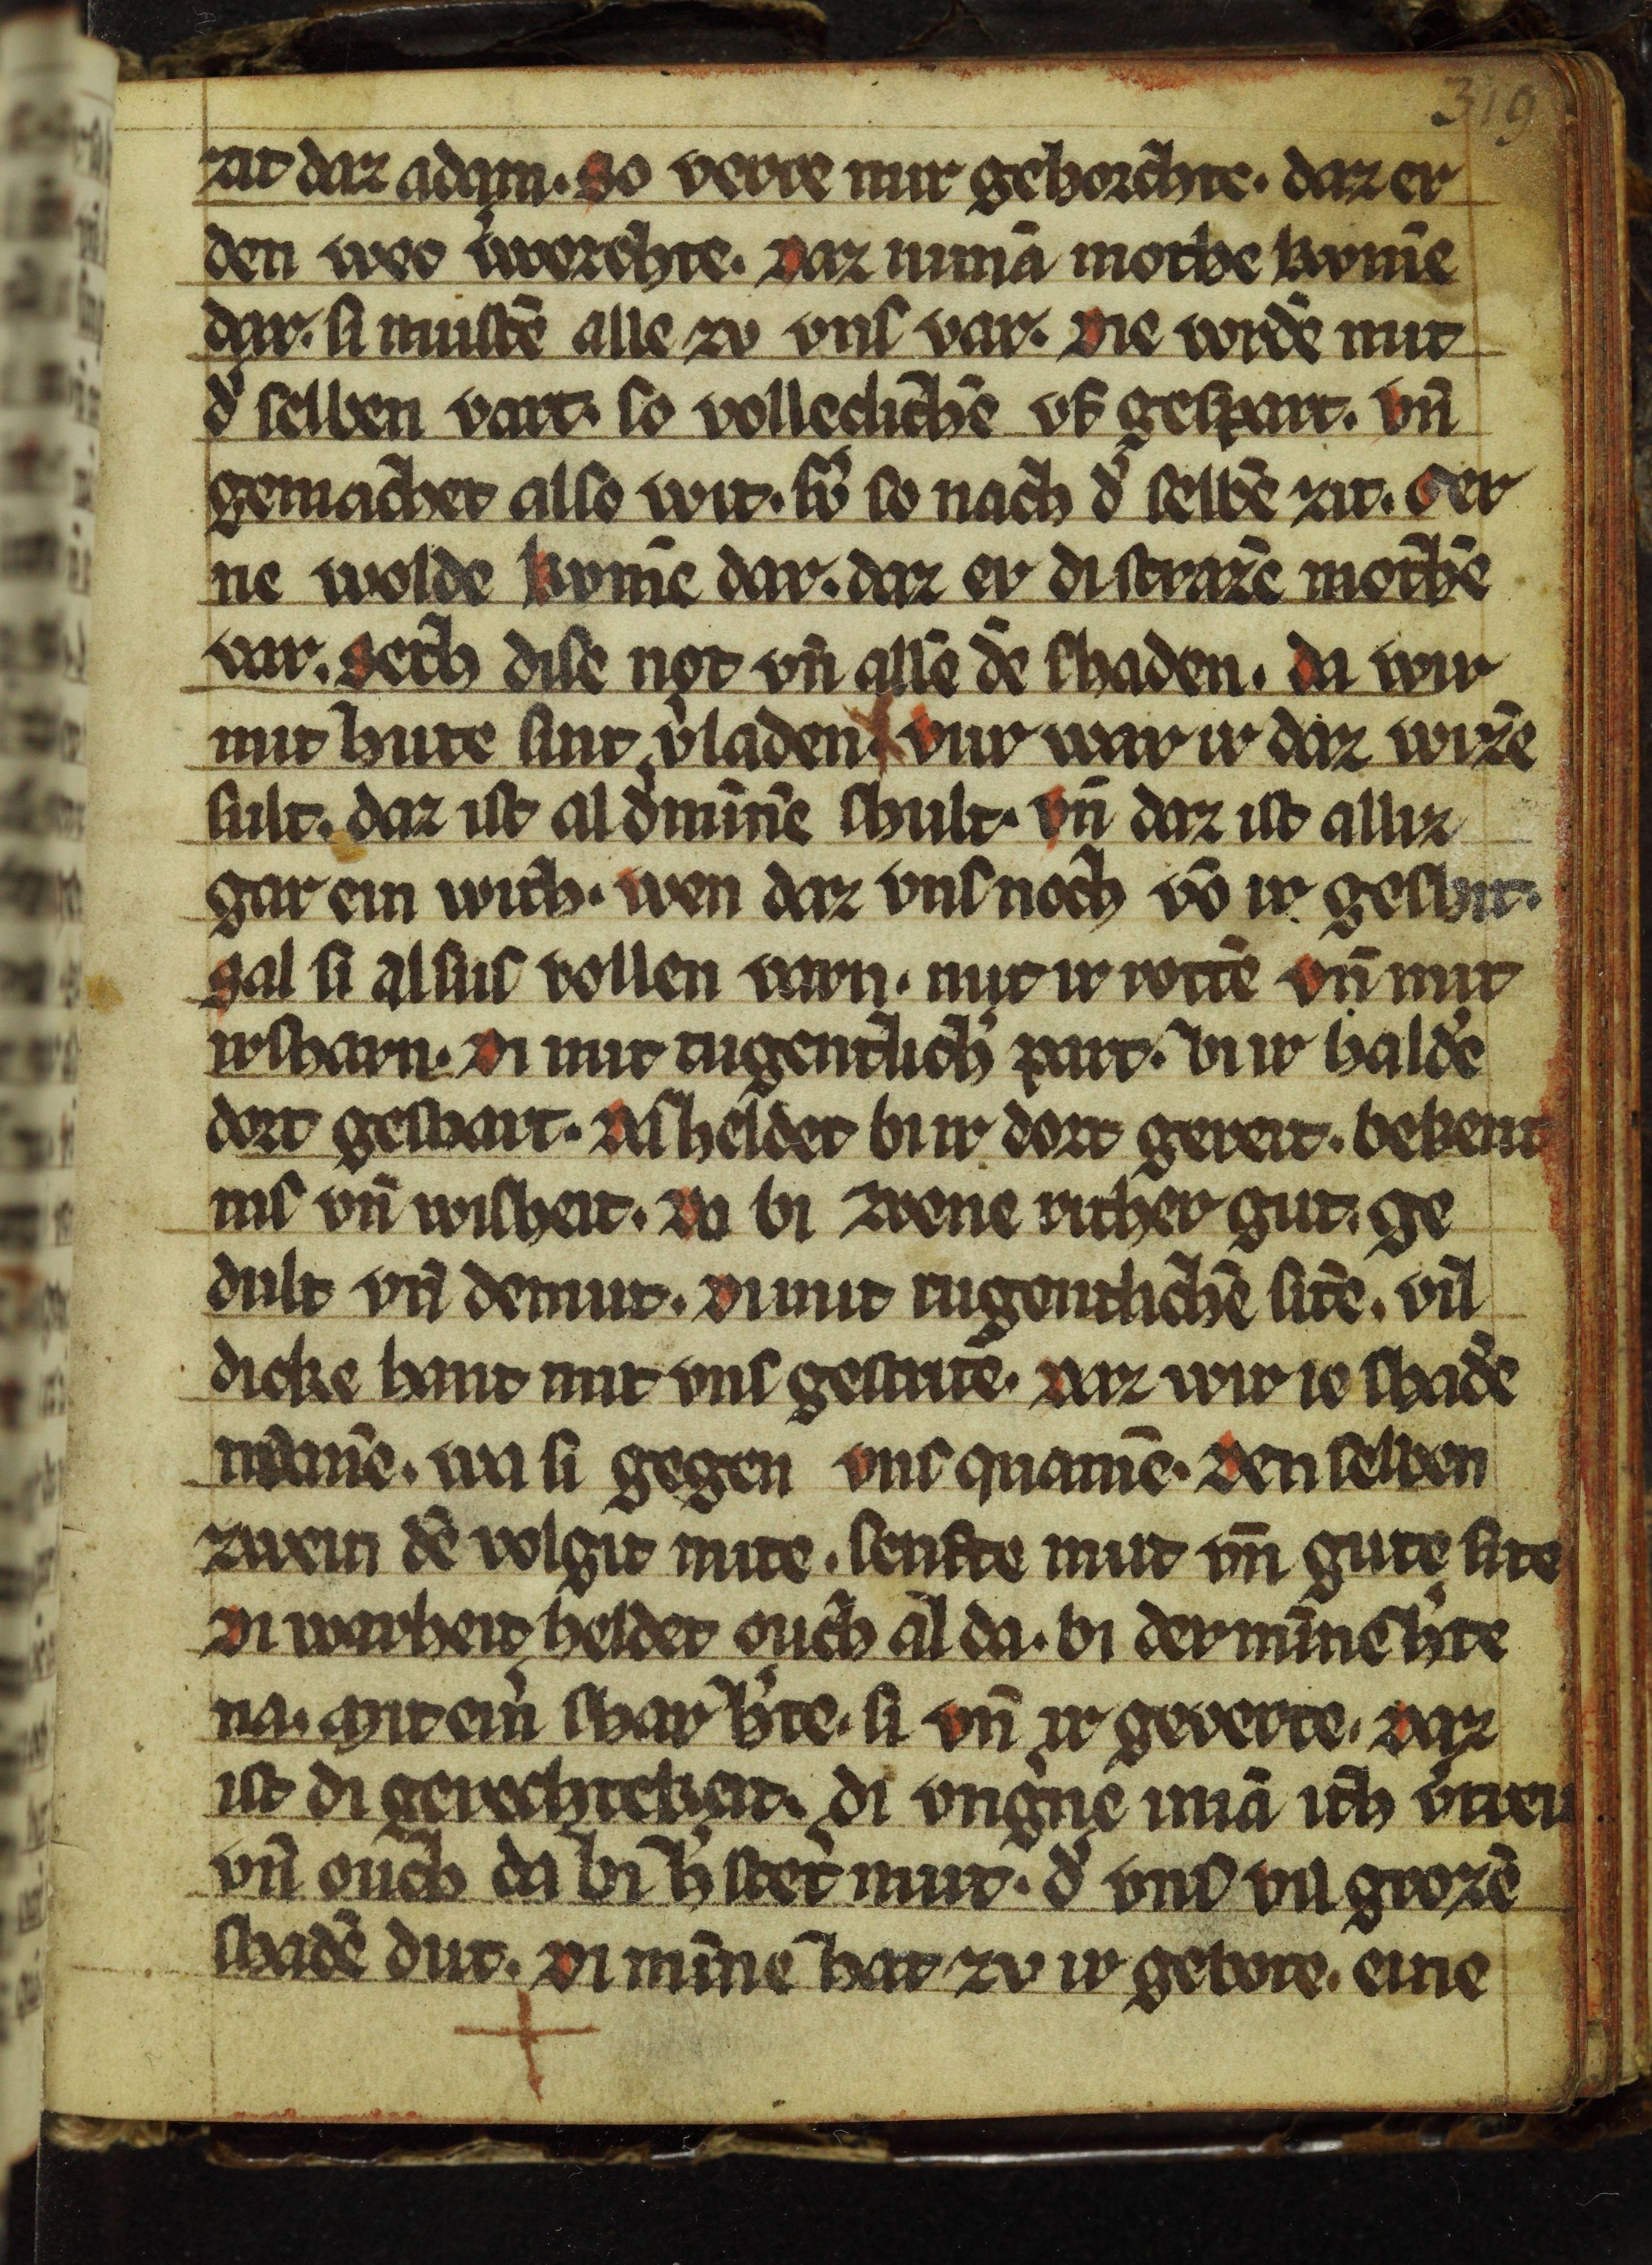 319
zit daz adam. So verre mir gehorchte. daz er
den wec v̓worchte. Daz nimā mothe kvmē
dar. si mustē alle zv vns var. Die wrdē mit
d̓ selben vart. so volleclichē vf gespart. vn̄
gemachet also wit. sw̓ so nach d̓ selbē zit. Der
ne wolde kvmē dar. daz er di strazē mochē
var. Seth dise not vn̄ allē dē shaden. da wir
mit hute sint v̓laden. vur war ir daz wizē
sult. daz ist al d̓ minnē shult. vn̄ daz ist alliz
gar ein wich. wen daz vns noch vō ir geshit.
Sal si alsus vollen varn. mit ir rottē vn̄ mit
ir sharn. Di mit tugentlich̓ part. bi ir haldē
dort geshart. Als heldet bi ir dort gereit. bekent
nis vn̄ wisheit. Da bi zwene rither gut. ge
dult vn̄ demut. Di mit tugentlichē sitē. vil
dicke hant mit vns gestritē. Daz wir ie shadē
namē. wa si gegen vns quamē. Den selben
zwein dē volgit mite. senfte mut vn̄ gute site
Di warheit heldet ouch al da. bi der minne h̓te
na. Mit ein̓ shar h̓te. si vn̄ ir geverte. Daz
ist di gerechtekeit. di vng̓ne imā ich v̓treit
vn̄ ouch da bi h̓ stet̓ mut. d̓ vns vil grozē
shadē dut. Di minne hat zv ir gebote. eine